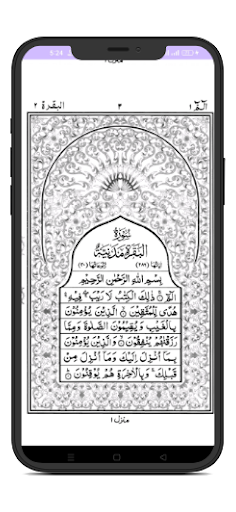 الٓمّٓ ١ ٣ البقرة ٢
سُورَةُ
الْبَقَرَةِ مَدَنِيَّةٌ
بِسْمِ اللّٰهِ الرَّحْمٰنِ الرَّحِيْمِ
الٓمّٓ ذٰلِكَ الْكِتٰبُ لَا رَيْبَ فِيْهِ
هُدًى لِّلْمُتَّقِيْنَ الَّذِيْنَ يُؤْمِنُوْنَ
بِالْغَيْبِ وَيُقِيْمُوْنَ الصَّلٰوةَ وَمِمَّا
رَزَقْنٰهُمْ يُنْفِقُوْنَ وَالَّذِيْنَ يُؤْمِنُوْنَ
بِمَآ اُنْزِلَ اِلَيْكَ وَمَآ اُنْزِلَ مِنْ
قَبْلِكَ وَبِالْاٰخِرَةِ هُمْ يُوْقِنُوْنَ
منزل ١